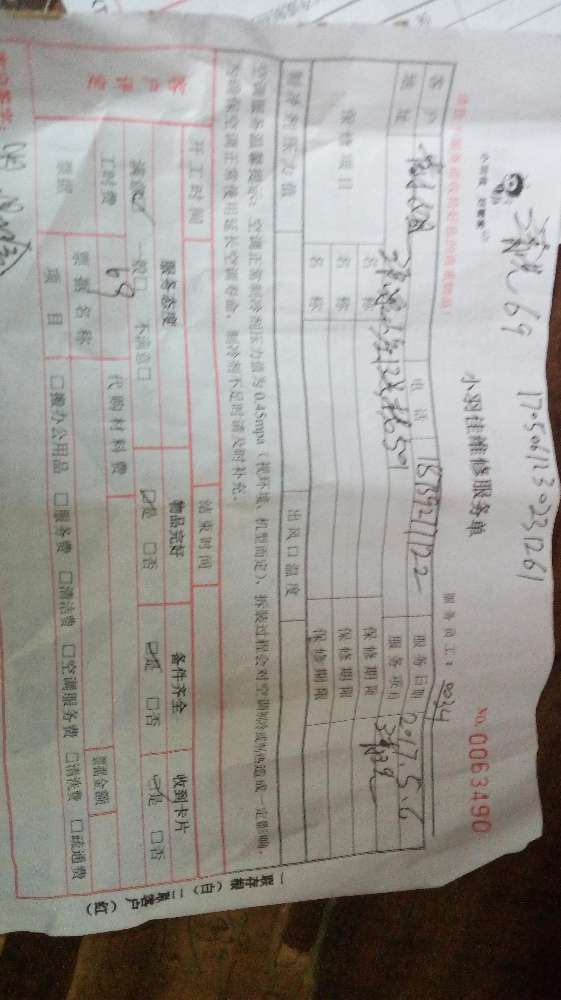 清洗 69 1705061230231261
小羽佳 好管家
小羽佳维修服务单
服务员工：9034 NO. 0063490
客户 电话 服务日期 2017.5.6
地址 501 服务项目 清洗
保修项目 名称 保修期限
名称 保修期限
名称 保修期限
制冷剂压力值 出风口温度
空调服务温馨提示：空调正常制冷剂压力值为0.45mpa（视环境、机型而定），拆装过程会对空调制冷或制热造成一定影响，
为确保空调正常使用延长空调寿命，制冷剂不足时请及时补充。
开工时间 结束时间
客户评定 服务态度 物品完好 备件齐全 收到卡片
满意 一般□ 不满意□ 是 □否 是 □否 是 □否
工时费 69 代购材料费
票据 票据名称 票据金额
项目 □办公用品 □服务费 □清洁费 □空调服务费 □清洗费 □疏通费
一联存根（白）二联客户（红）